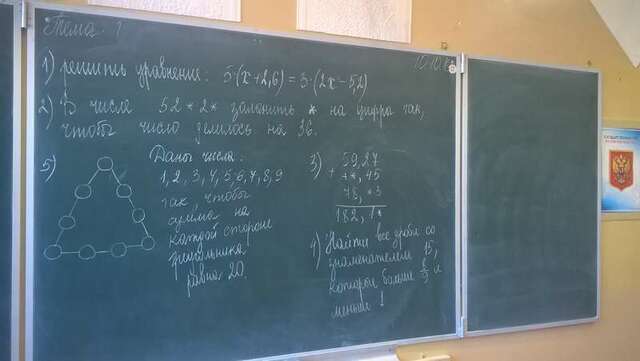 Тема
1) решить уравнение: 5·(x+2,6) = 3·(2x-52)
2) В числе 52*2* заменить * на цифры так,
чтобы число делилось на 36.
5)
Даны числа:
1, 2, 3, 4, 5, 6, 7, 8, 9
так, чтобы
сумма на
каждой стороне
треугольника
равна 20.
3) 59,27
+ **,45
78,*3
182,1*
4) Найти все дроби со
знаменателем 15,
которые больше 8/9 и
меньше 1